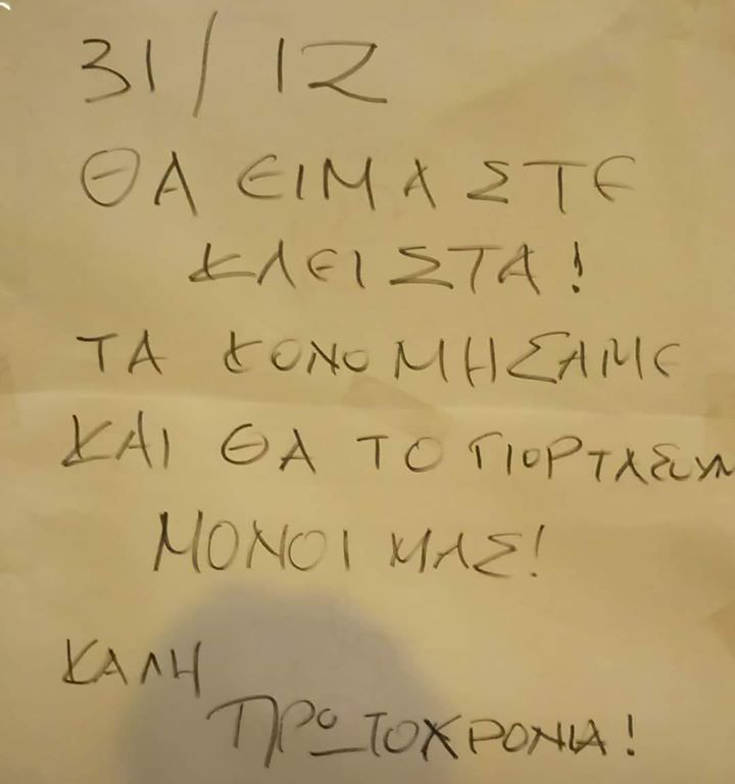 31/12
ΘΑ ΕΙΜΑΣΤΕ
ΚΛΕΙΣΤΑ!
ΤΑ ΚΟΝΟΜΗΣΑΜΕ
ΚΑΙ ΘΑ ΤΟ ΓΙΟΡΤΑΣΟΥΜ
ΜΟΝΟΙ ΜΑΣ!
ΚΑΛΗ
ΠΡΩΤΟΧΡΟΝΙΑ!